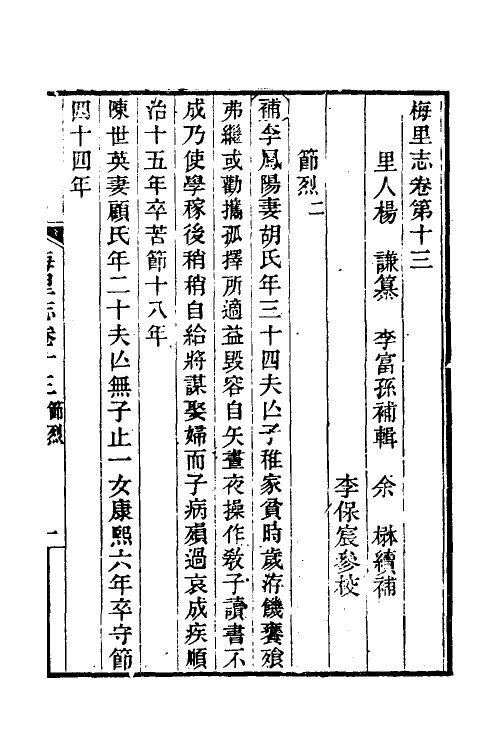 梅里志卷第十三
里人楊 謙纂 李富孫補輯 余 楙續補
李保宸參校
節烈二
補李鳳陽妻胡氏年三十四夫亾子稚家貧時歲洊饑饔飧
弗繼或勸攜孤擇所適益毁容自矢晝夜操作敎子讀書不
成乃使學稼後稍稍自給將謀娶婦而子病殞過哀成疾順
治十五年卒苦節十八年
陳世英妻顧氏年二十夫亾無子止一女康熙六年卒守節
四十四年
梅里志卷十三 節烈 一